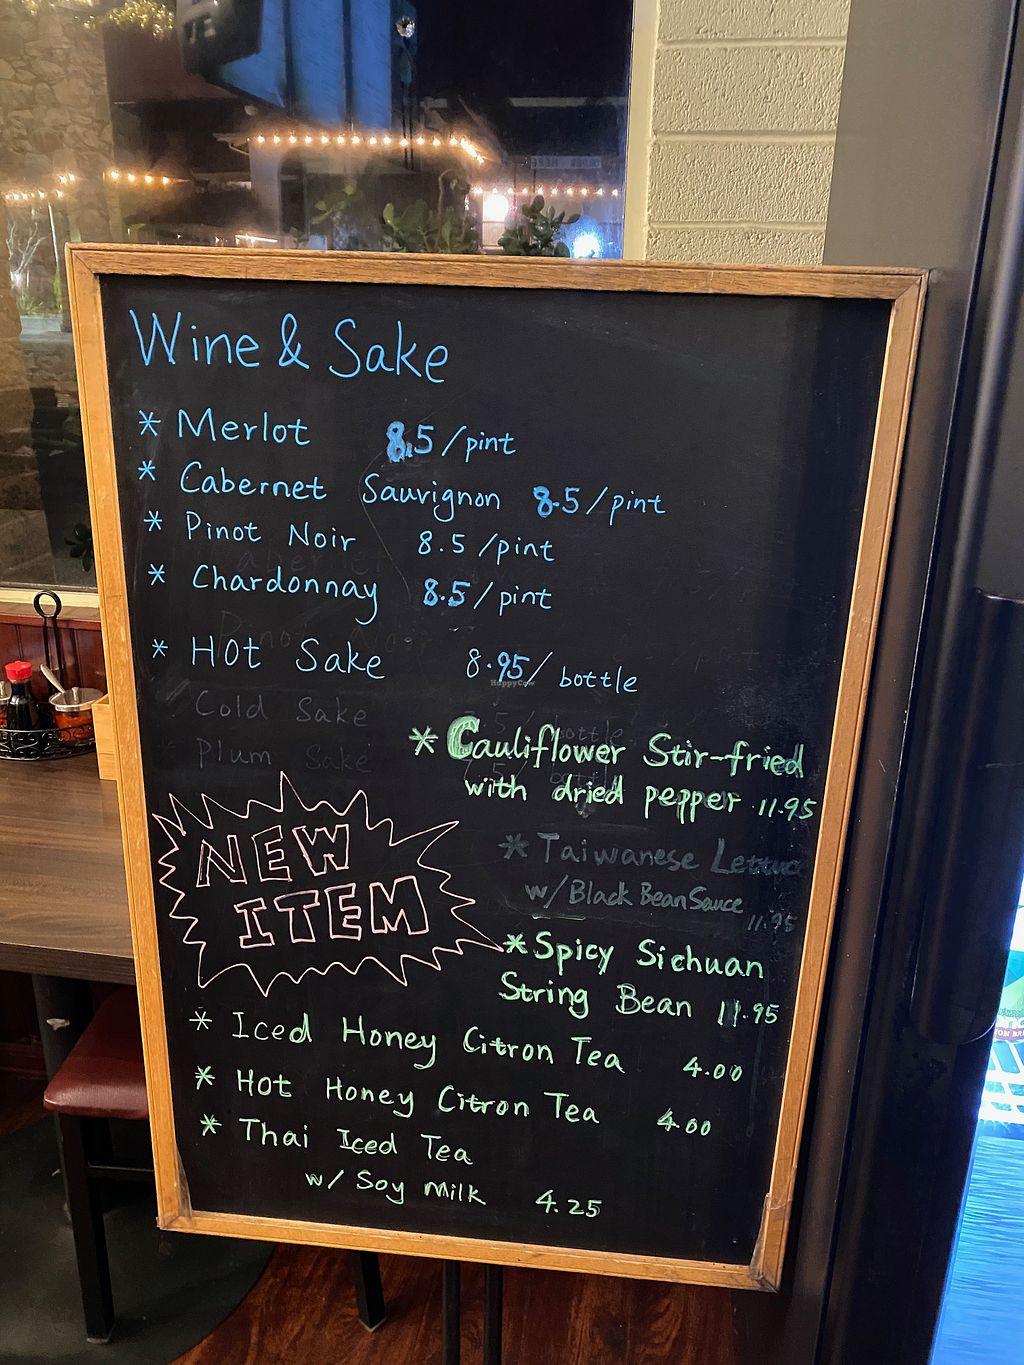 Wine & Sake
* Merlot 8.5/pint
* Cabernet Sauvignon 8.5/pint
* Pinot Noir 8.5/pint
* Chardonnay 8.5/pint
* Hot Sake 8.95/bottle
HappyCow
Cold Sake
Plum Sake
* Cauliflower Stir-fried
with dried pepper 11.95
NEW
ITEM
* Taiwanese Lettuce
w/Black Bean Sauce
11.95
* Spicy Sichuan
String Bean 11.95
* Iced Honey Citron Tea 4.00
* Hot Honey Citron Tea 4.00
* Thai Iced Tea
w/ Soy Milk 4.25